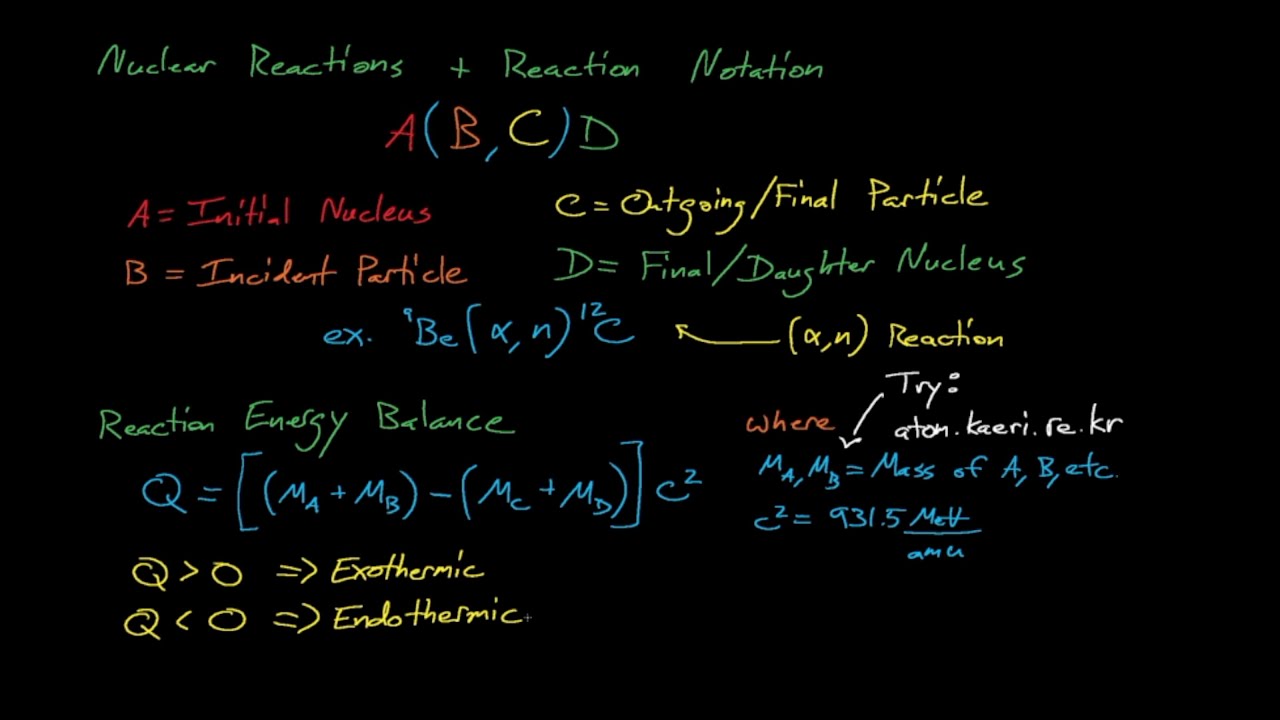 Nuclear Reactions + Reaction Notation
A(B,C)D
A = Initial Nucleus
B = Incident Particle
C = Outgoing/Final Particle
D = Final/Daughter Nucleus
ex. ⁹Be(α,n)¹²C ← (α,n) Reaction
Reaction Energy Balance
Q = [(M_A + M_B) - (M_C + M_D)] c²
Q > 0 => Exothermic
Q < 0 => Endothermic
Try:
aton.kaeri.re.kr
where
M_A, M_B = Mass of A, B, etc.
c² = 931.5 MeV/amu